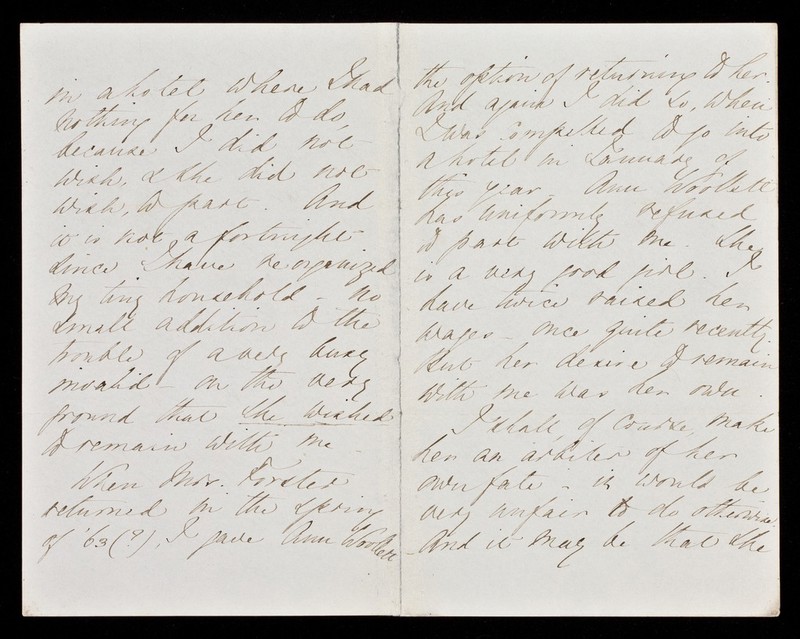 in a hotel where I had
nothing for her to do,
because I did not
wish, & she did not
wish, to part. And
it is not a fortnight
since I have re-organized
my tiny household - no
small addition to the
trouble of a very busy
invalid - on the very
ground that she wished
to remain with me.
When Mrs. Forster
returned in the Spring
of '63 (?), I gave Ann Woollett
the option of returning to her.
And again I did so, when
I was compelled to go into
a hotel in January of
this year - Ann Woollett
has uniformly refused
to part with me. She
is a very good girl. I
have twice raised her
wages - once quite recently.
But her desire to remain
with me was her own.
I shall, of course, make
her an arbiter of her
own fate - it would be
very unfair to do otherwise.
- And it may be that she